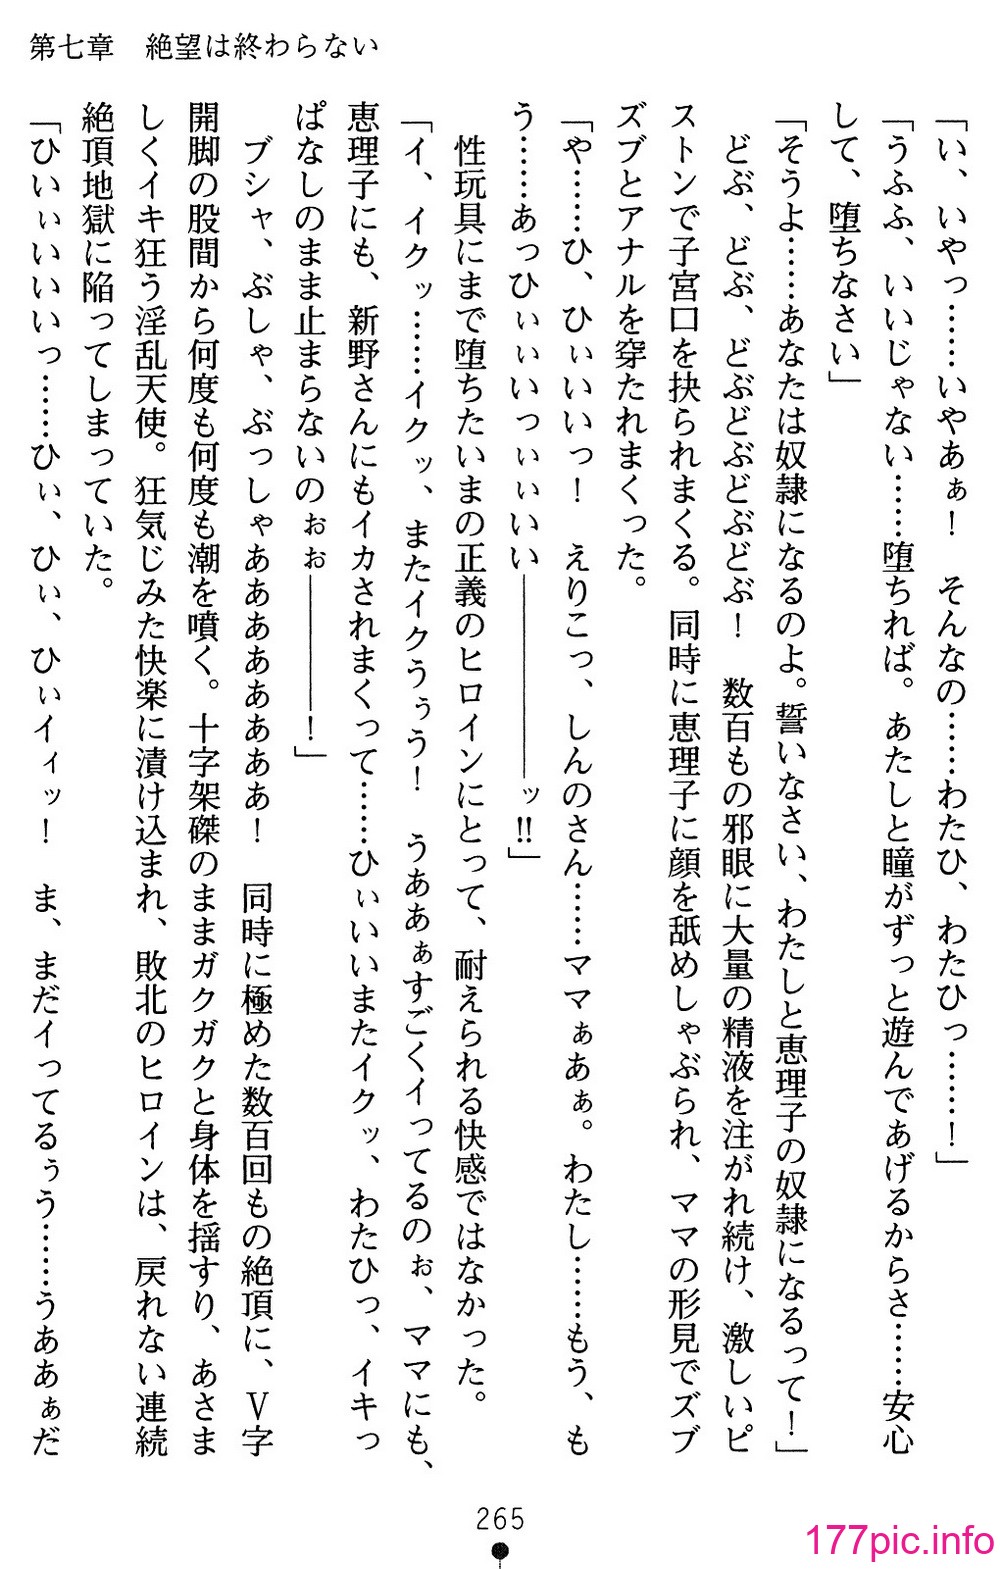 第七章　絶望は終わらない
「い、いやっ……いやあぁ！　そんなの……わたひ、わたひっ……！」
「うふふ、いいじゃない……堕ちれば。あたしと瞳がずっと遊んであげるからさ……安心
して、堕ちなさい」
「そうよ……あなたは奴隷になるのよ。誓いなさい、わたしと恵理子の奴隷になるって！」
　どぶ、どぶ、どぶどぶどぶどぶ！　数百もの邪眼に大量の精液を注がれ続け、激しいピ
ストンで子宮口を抉られまくる。同時に恵理子に顔を舐めしゃぶられ、ママの形見でズブ
ズブとアナルを穿たれまくった。
「や……ひ、ひぃいいっ！　えりこっ、しんのさん……ママぁあぁ。わたし……もう、も
う……あっひぃぃいっぃぃいい――――――ッ!!」
　性玩具にまで堕ちたいまの正義のヒロインにとって、耐えられる快感ではなかった。
「イ、イクッ……イクッ、またイクうぅう！　うああぁすごくイってるのぉ、ママにも、
恵理子にも、新野さんにもイカされまくって……ひぃいいまたイクッ、わたひっ、イキっ
ぱなしのまま止まらないのぉぉ――――！」
　ブシャ、ぶしゃ、ぶっしゃああああああああぁ！　同時に極めた数百回もの絶頂に、Ｖ字
開脚の股間から何度も何度も潮を噴く。十字架磔のままガクガクと身体を揺すり、あさま
しくイキ狂う淫乱天使。狂気じみた快楽に漬け込まれ、敗北のヒロインは、戻れない連続
絶頂地獄に陥ってしまっていた。
「ひいぃいいいっ……ひぃ、ひぃ、ひぃイィッ！　ま、まだイってるぅう……うああぁだ
265
177pic.info